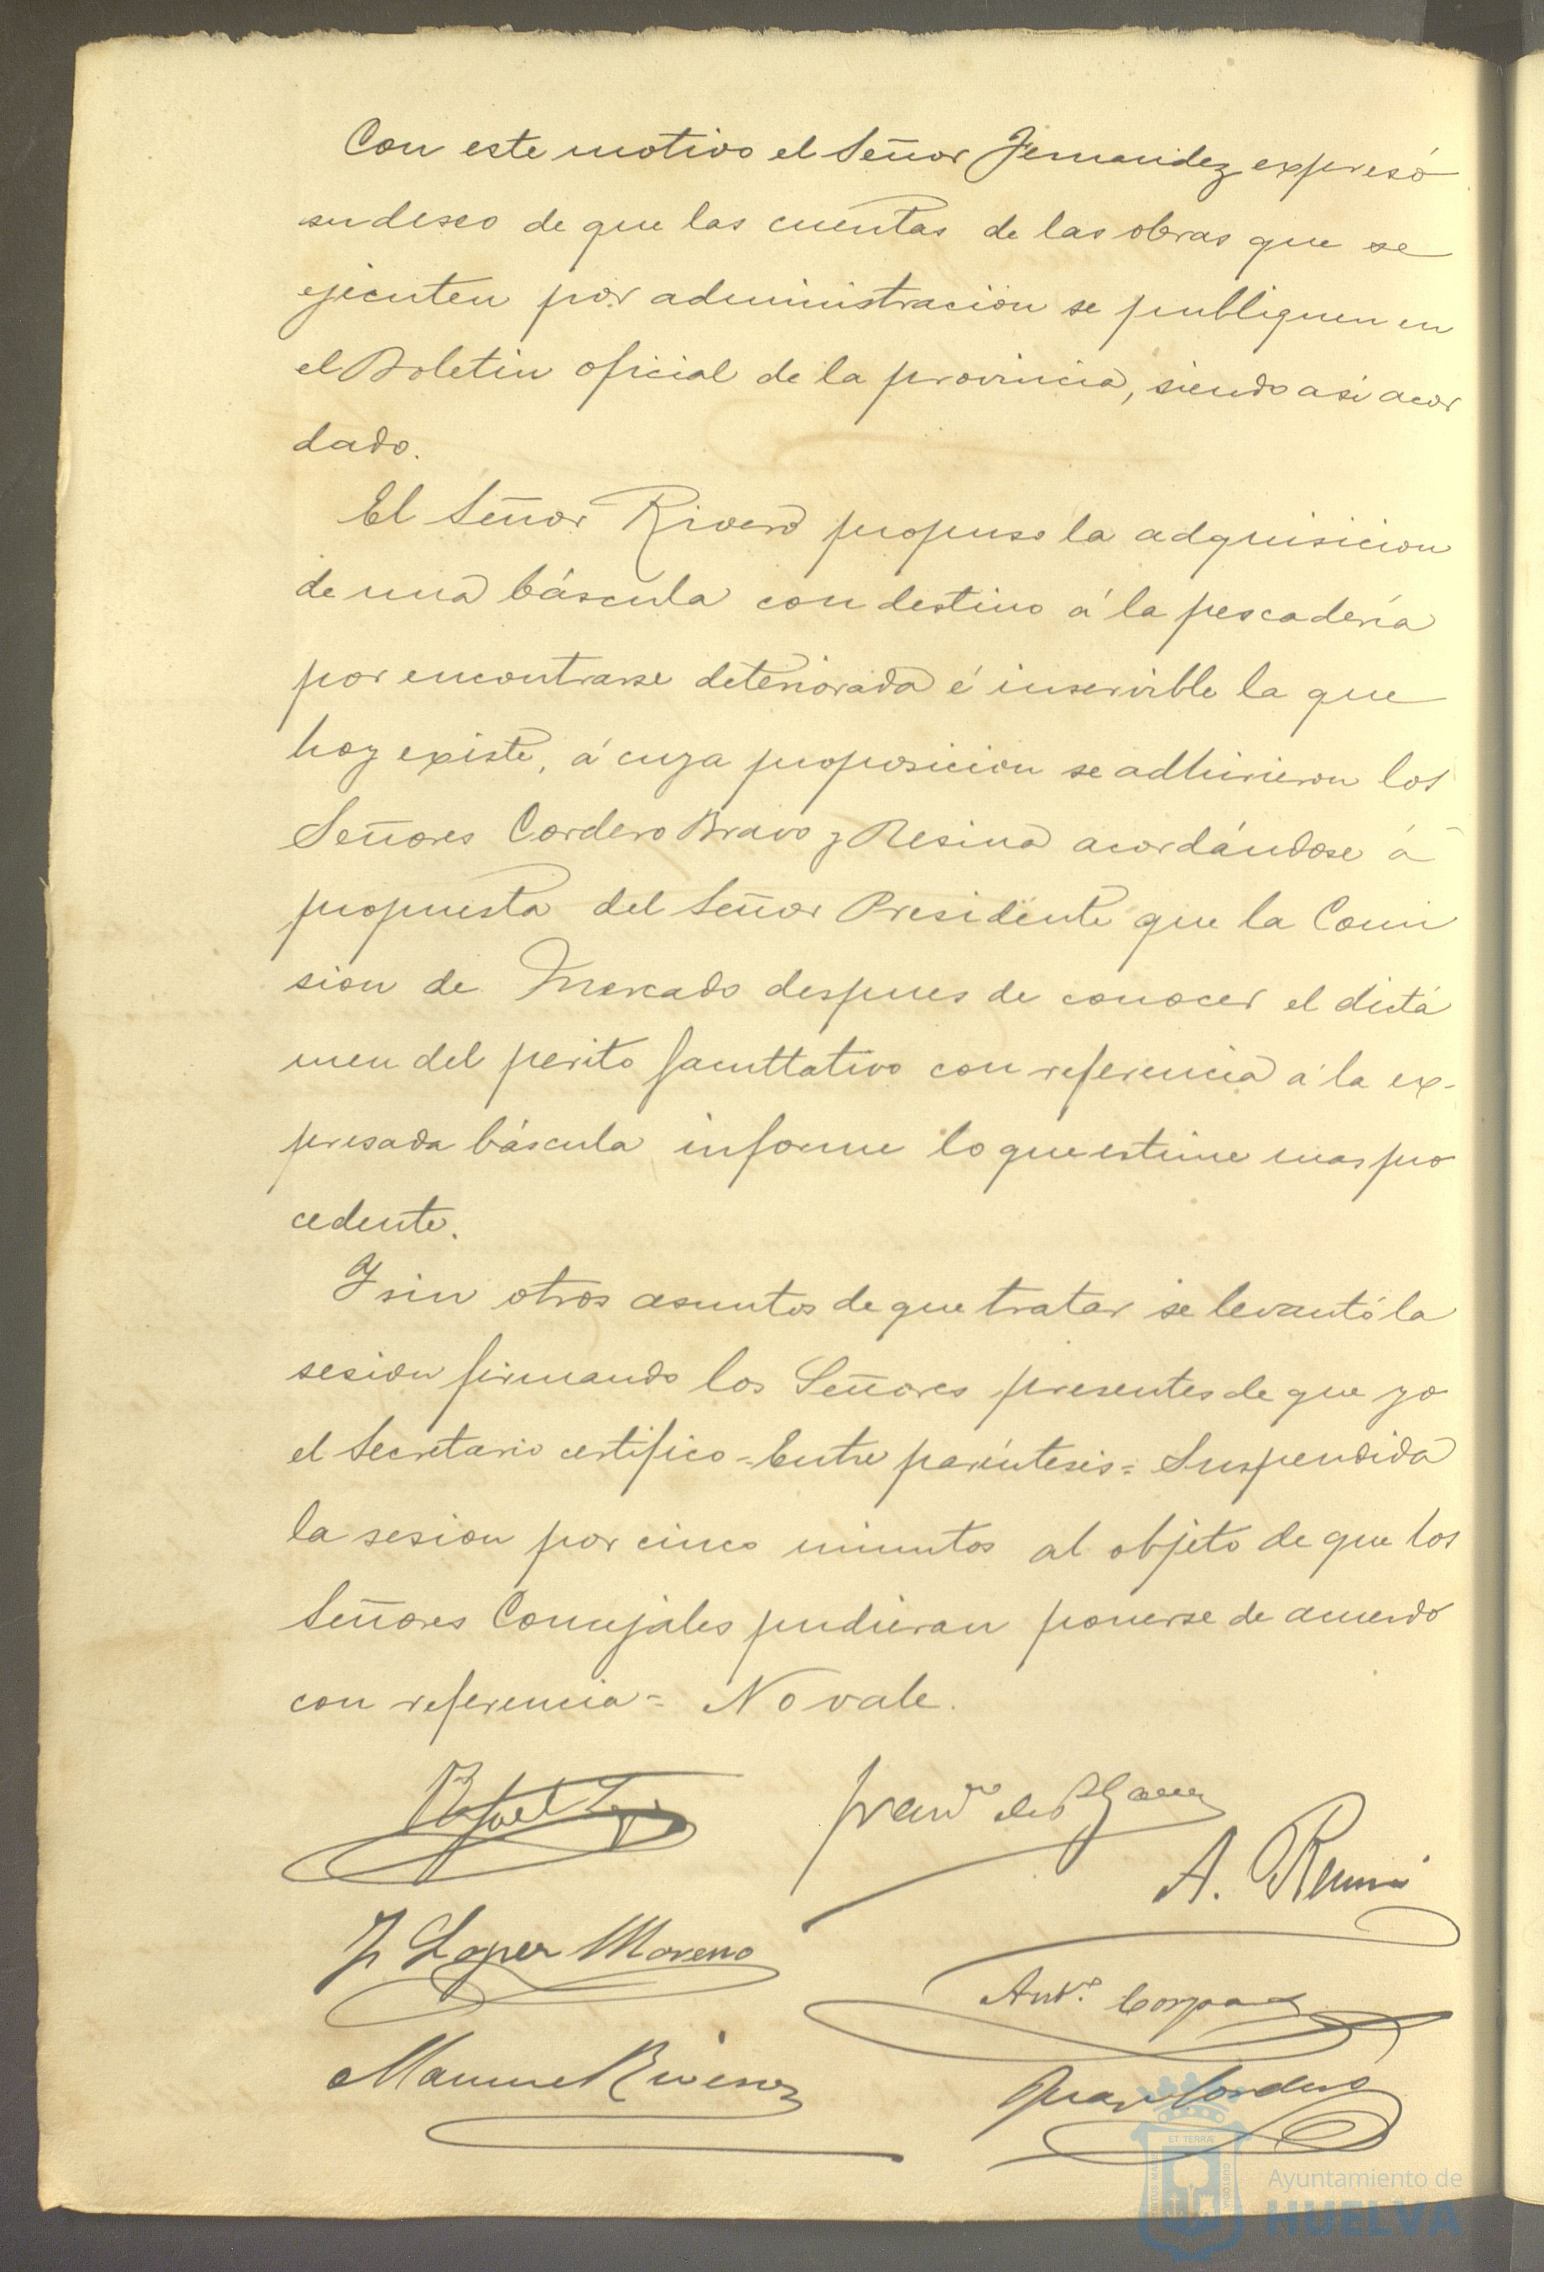 Con este motivo el Señor Fernandez expresó
su deseo de que las cuentas de las obras que se
ejecuten por administracion se publiquen en
el Boletin oficial de la provincia, siendo asi acor
dado.
El Señor Rivero propuso la adquisicion
de una báscula con destino á la pescadería
por encontrarse deteriorada é inservible la que
hoy existe, á cuya proposicion se adhirieron los
Señores Cordero Bravo y Resina acordándose á
propuesta del Señor Presidente que la Comi
sion de Mercado despues de conocer el dictá
men del perito facultativo con referencia á la ex-
presada báscula informe lo que estime mas pro
cedente.
Y sin otros asuntos de que tratar se levantó la
sesion firmando los Señores presentes de que yo
el Secretario certifico = Entre paréntesis = Suspendida
la sesion por cinco minutos al objeto de que los
Señores Concejales pudieran ponerse de acuerdo
con referencia = No vale.
Rafael
Fran.co de P.
A.
J. Lopez Moreno
Ant.o
Manuel Rivero
Juan Cordero
ET TERRÆ
Ayuntamiento de
HUELVA